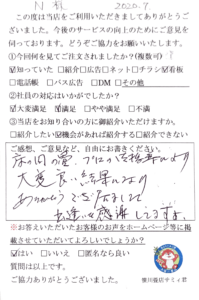 N 様 2020.7
この度は当店をご利用いただきましてありがとうご
ざいました。今後のサービスの向上のためにご意見を
伺っております。どうぞご協力をお願いいたします。
①今回何を見てご注文されましたか?(複数可)
☑知っていた □紹介 □広告 □ネット □チラシ ☑看板
□電話帳 □バス広告 □DM □その他
②社員の対応はいかがでしたか?
☑大変満足 ☑満足 □やや満足 □不満
③当店をお知り合いの方に御紹介いただけますか。
□紹介したい ☑機会があれば紹介する □紹介できない
ご感想、ご意見など、自由にお書きください。
大変良い結果になり
ありがとうございました
出逢いに感謝してますよ。
※お答えいただいたお客様のお声をホームページ等に掲
載させていただいてよろしいでしょうか?
☑はい □いいえ □匿名なら良い
質問は以上です。
ご協力ありがとうございました。